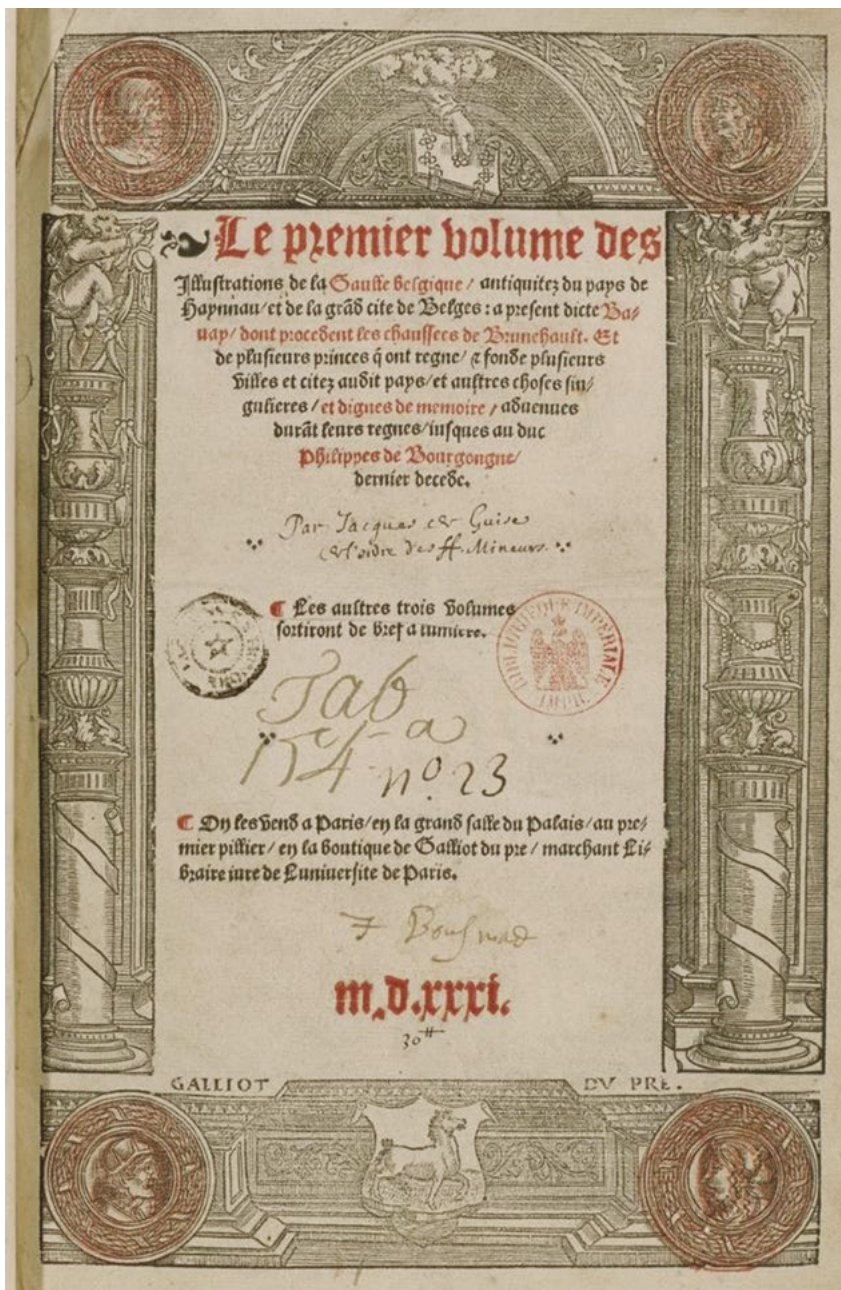 Le premier volume des
Illustrations de la Gaulle Belgique / antiquitez du pays de
Haynnau / et de la grãd cite de Belges : a present dicte Ba-
uay / dont procedent les chaussees de Brunehault. Et
de plusieurs princes q̃ ont regne / & fonde plusieurs
villes et citez audit pays / et aultres choses sin-
gulieres / et dignes de memoire / aduenues
durãt leurs regnes / iusques au duc
Philippes de Bourgongne /
dernier decede.
Par Jacques de Guise
de l'ordre des ff. Mineurs.
¶ Les aultres trois volumes
sortiront de bref a lumiere.
BIBLIOTHEQUE IMPERIALE
Tab
154 a
nº. 23
¶ On les vend a Paris / en la grand salle du Palais / au pre-
mier pillier / en la boutique de Galliot du pre / marchant Li-
braire iure de Luniuersite de Paris.
m.d.xxxi.
30ᵗᵗ
GALLIOT DV PRE.